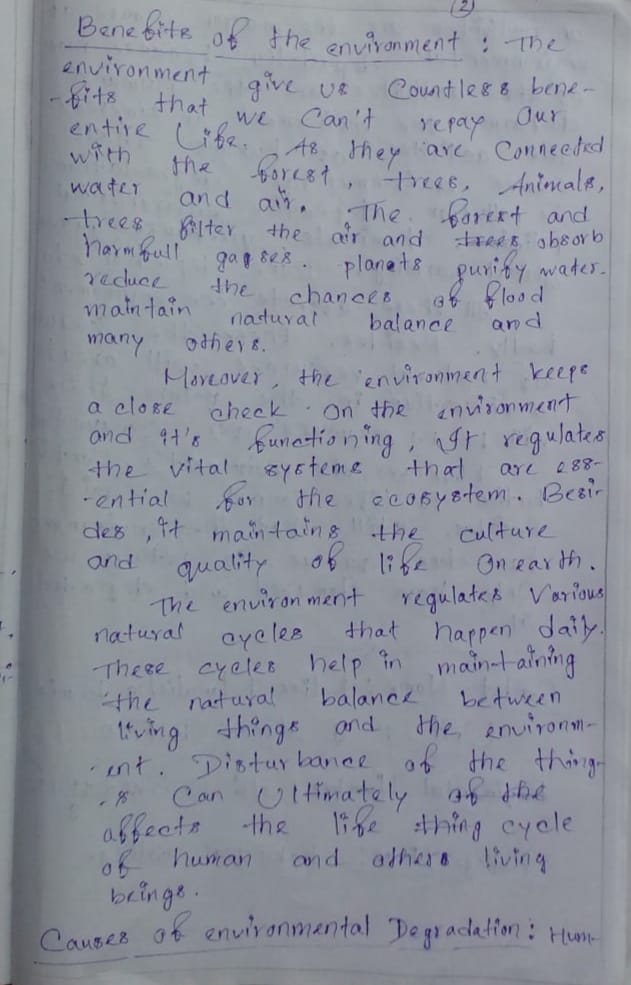 (2)
Benefits of the environment : The
environment give us Countless bene-
-fits that we can't repay our
entire life. As they are Connected
with the forest, trees, Animals,
water and air. The forest and
trees filter the air and trees obsorb
harmfull gasses. planets purify water.
reduce the chances of flood
maintain natural balance and
many others.
Moreover, the environment keeps
a close check on the environment
and it's functioning, It regulates
the vital systems that are ess-
-ential for the ecosystem. Besi-
des, it maintains the culture
and quality of life On earth.
The environment regulates Various
natural cycles that happen daily.
These cycles help in maintaining
the natural balance between
living things and the environm-
-ent. Disturbance of the thing-
-s Can Ultimately of the
affects the life thing cycle
of human and others living
beings.
Causes of environmental Degradation : Hum-